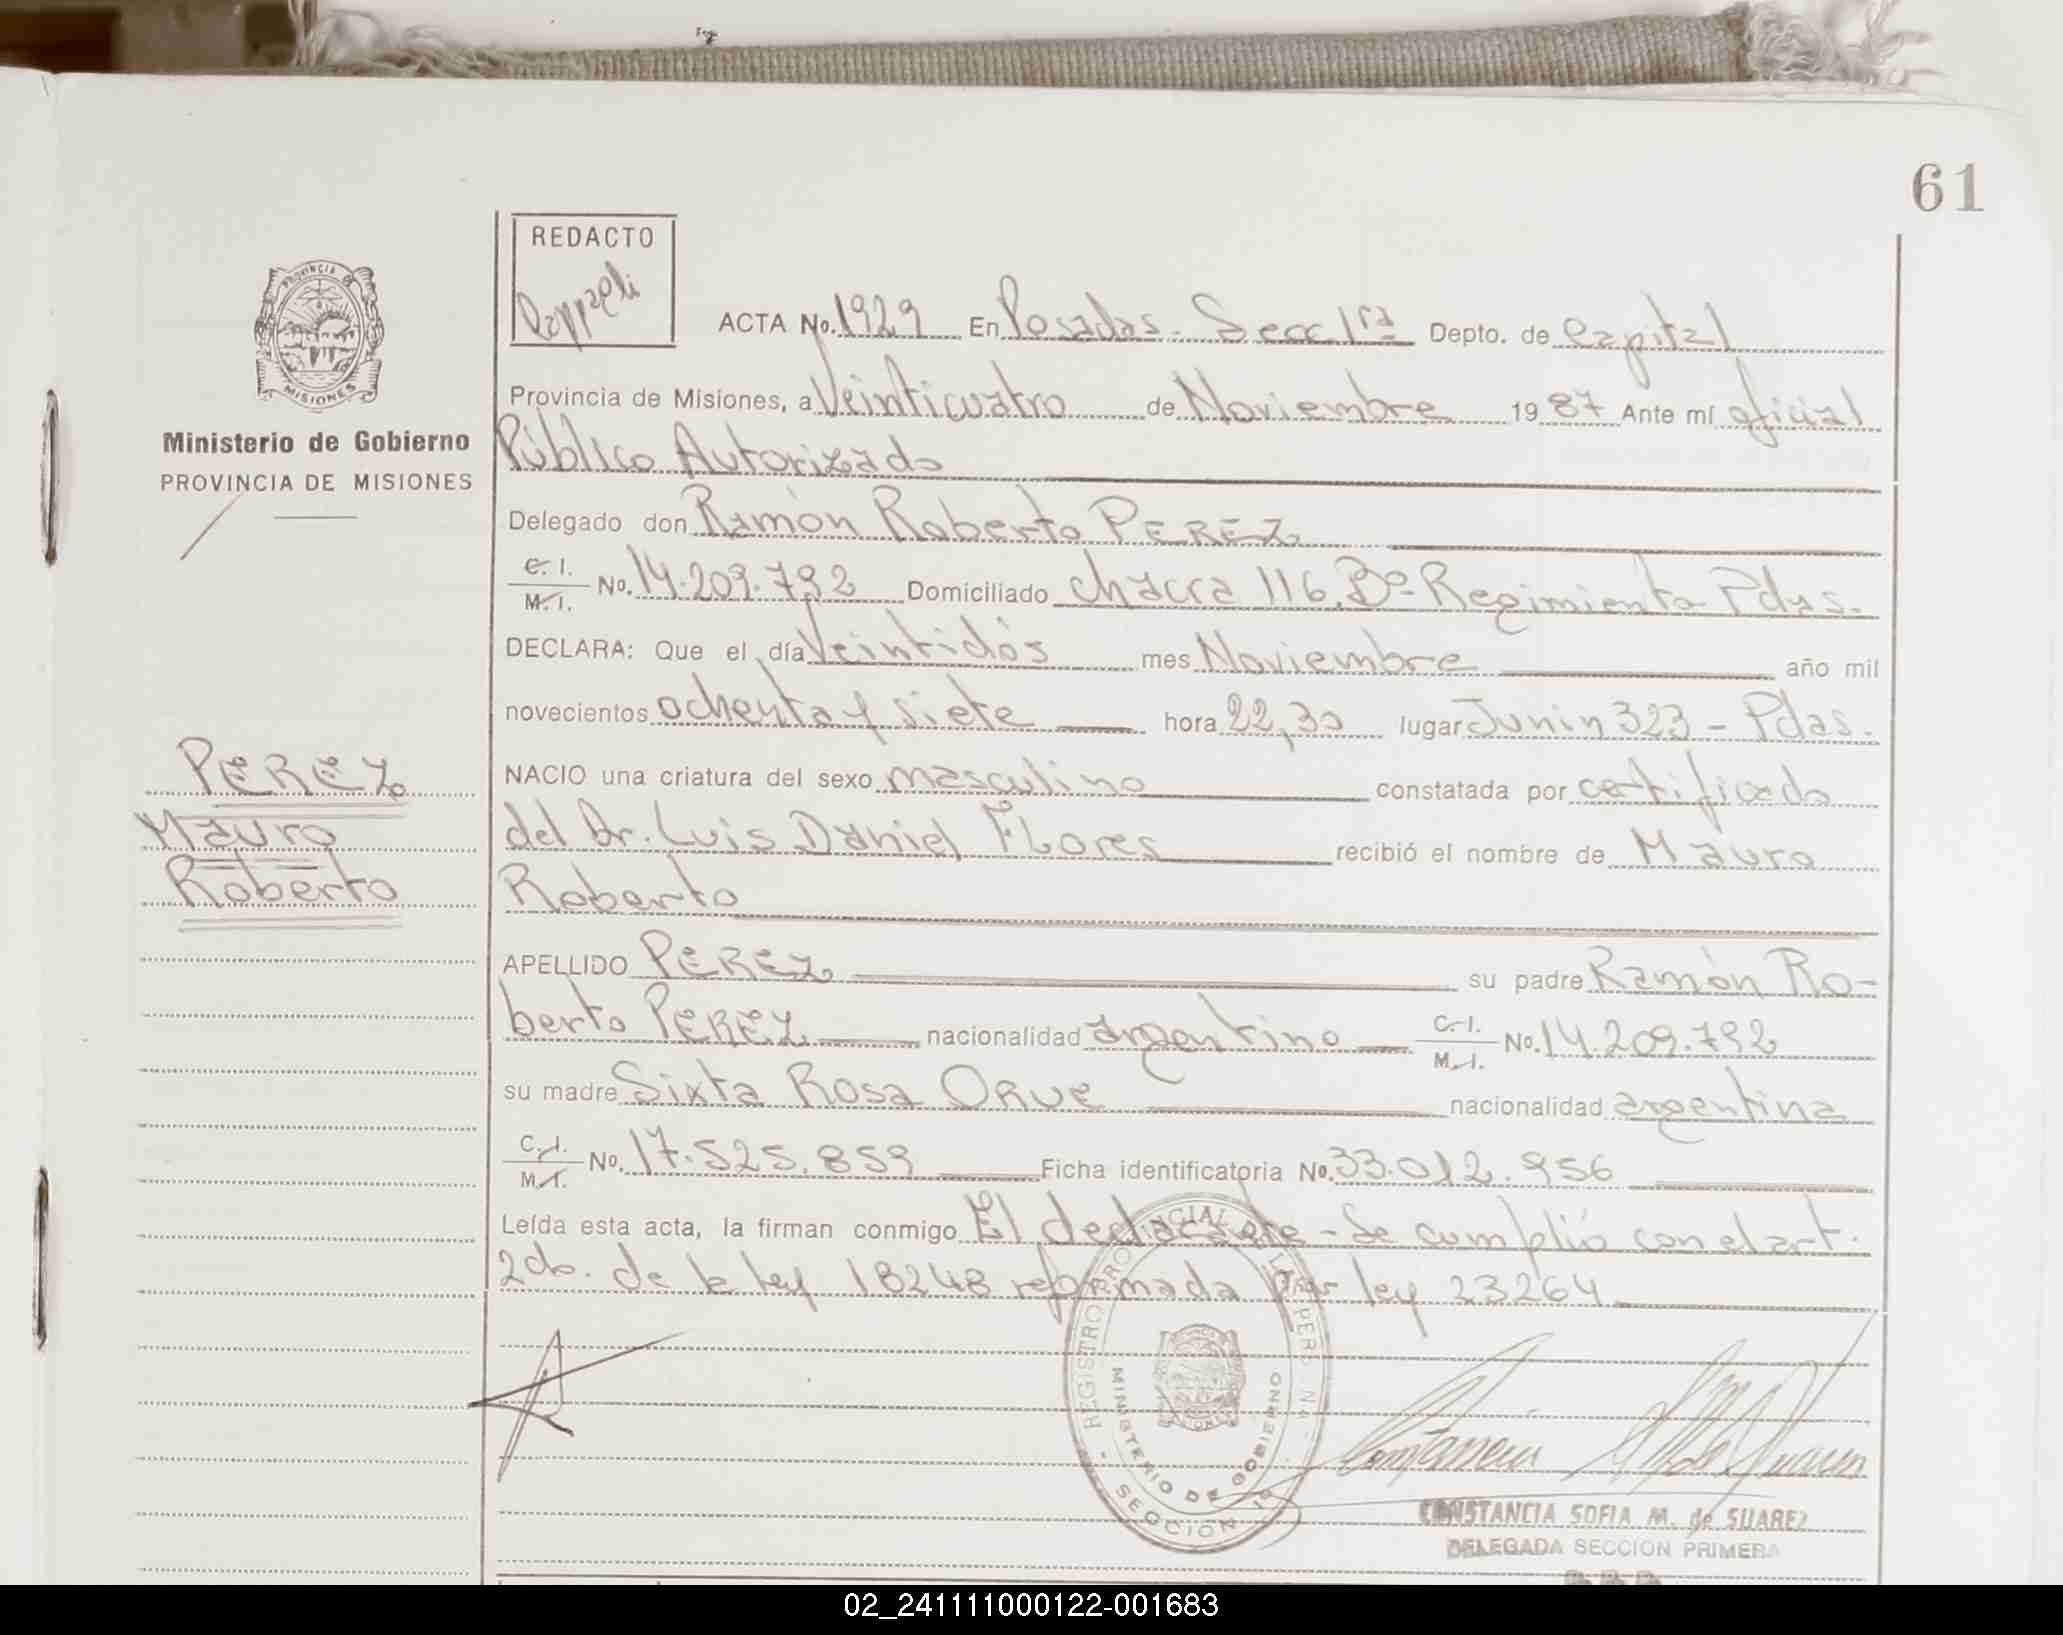 61
REDACTO
PROVINCIA
MISIONES
ACTA No. 1929 En Posadas - Secc 1ra Depto. de Capital
Ministerio de Gobierno
PROVINCIA DE MISIONES
Provincia de Misiones, a Veinticuatro de Noviembre 19 87 Ante mí oficial
Público Autorizado
Delegado don Ramón Roberto PEREZ
C. I.
M. I. No. 14.209.792 Domiciliado chacra 116. Bº Regimiento Pdas.
DECLARA: Que el día Veintidós mes Noviembre año mil
novecientos ochenta y siete hora 22,30 lugar Junin 323 - Pdas.
PEREZ
Mauro
Roberto
NACIO una criatura del sexo masculino constatada por certificado
del Dr. Luis Daniel FLores recibió el nombre de Mauro
Roberto
APELLIDO PEREZ su padre Ramón Ro-
berto PEREZ nacionalidad argentino C. I. M. I. No. 14.209.792
su madre Sixta Rosa ORUE nacionalidad argentina
C. I.
M. I. No. 17.525.859 Ficha identificatoria No. 33.012.956
Leída esta acta, la firman conmigo El declarante - Se cumplió con el art.
2do. de la ley 18248 reformada por ley 23264
MINISTERIO DE GOBIERNO
SECCION 1ª
CONSTANCIA SOFIA M. de SUAREZ
DELEGADA SECCION PRIMERA
02_241111000122-001683